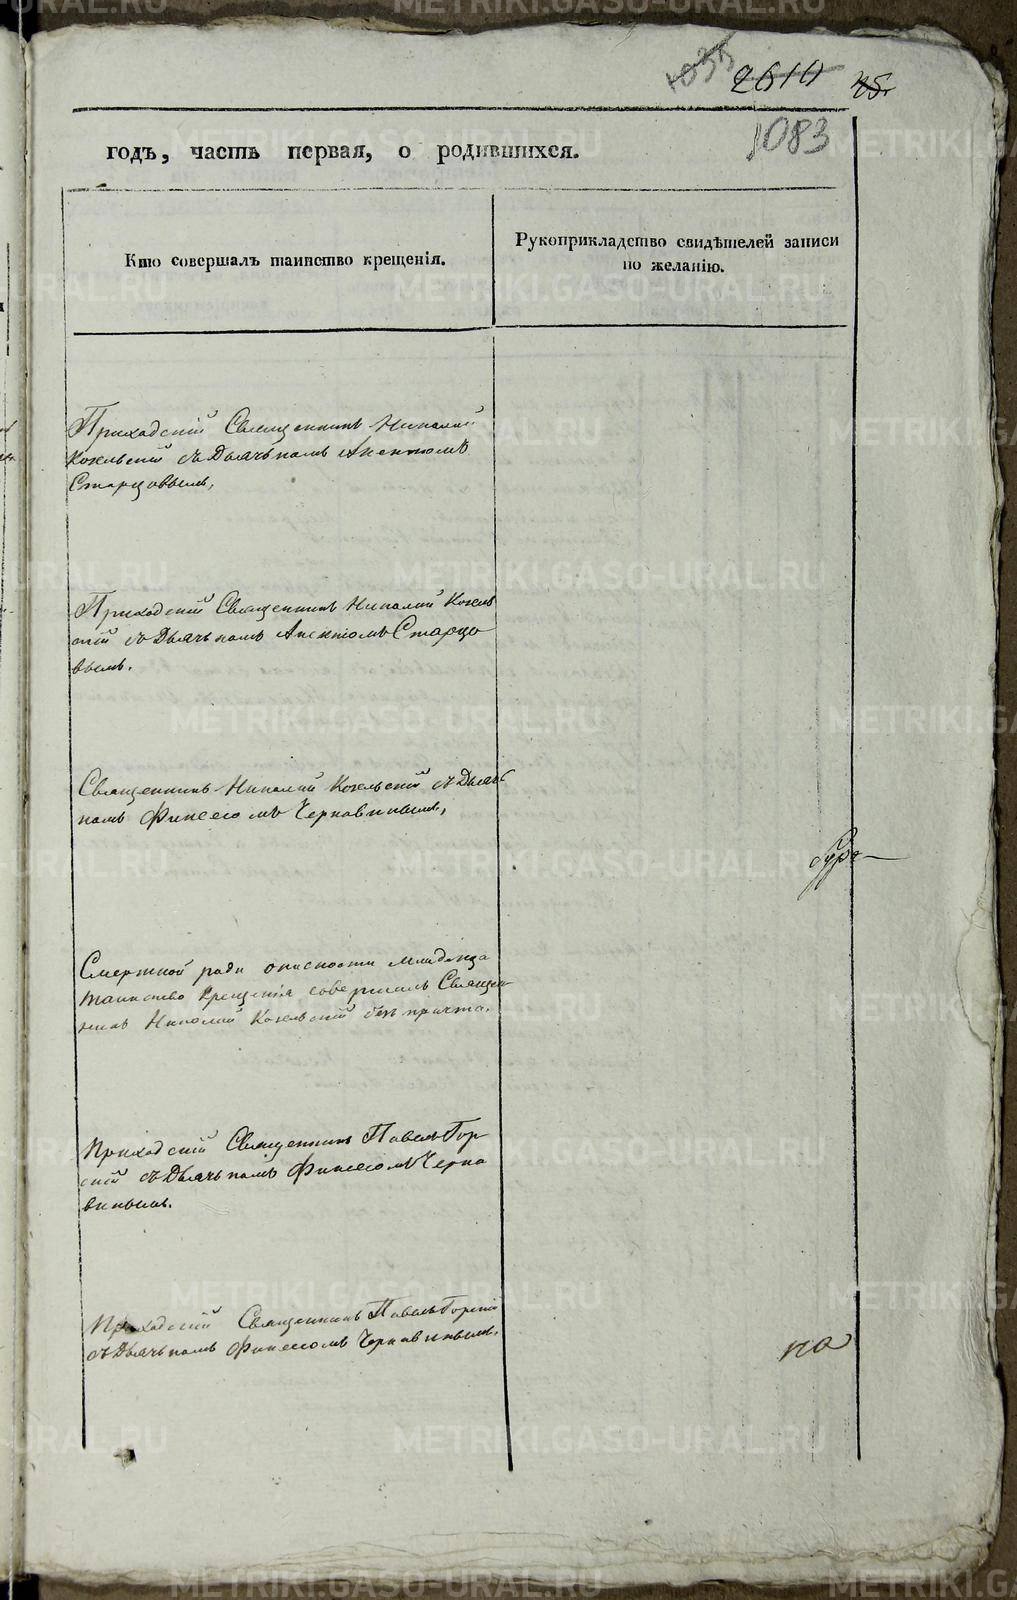 1035 2610 75.
1083
годъ, часть первая, о родившихся.
Кто совершалъ таинство крещенія.
Рукоприкладство свидѣтелей записи
по желанію.
Приходскій Священникъ Николай
Кокельскій съ Дьячькомъ
Старцовымъ,
Приходскій Священникъ Николай Кокель
скій съ Дьячькомъ Старцо
вымъ.
Священникъ Николай Кокельскій съ Дьячь
комъ Финеесомъ Чернавинымъ,
Смертной ради опасности младенца
таинство крещенія совершалъ Священ
никъ Николай Кокельскій безъ причта.
Приходскій Священникъ Павелъ Гор
скій съ Дьячькомъ Финеесомъ Черна
винымъ.
Приходскій Священникъ Павелъ Горскій
съ Дьячькомъ Финеесомъ Чернавинымъ.
на
METRIKI.GASO-URAL.RU